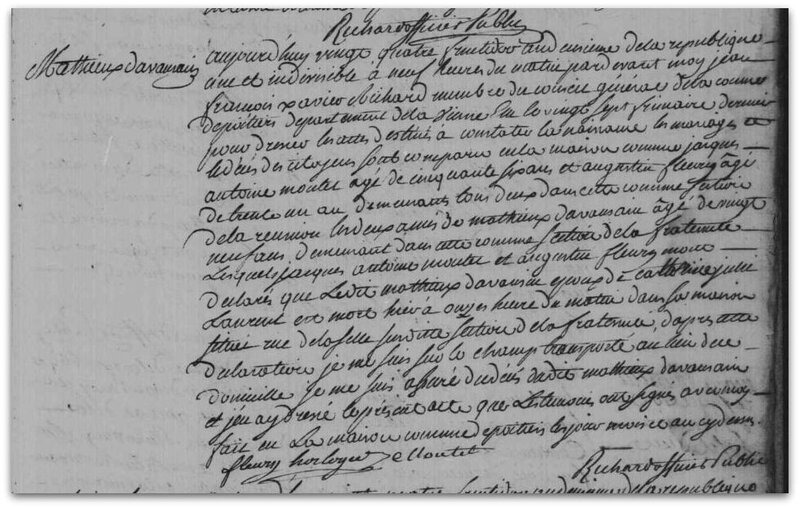 Richard officier Public
Mathieux davamain
aujourd'huy vingt quatre fructidor l'an deuxieme de la republique
une et indivisible à neuf heures du matin pardevant moy jean
françois xavier Richard membre du conseil général de la commune
de poitiers departement de la vienne élu le vingt sept frimaire dernier
pour dresser les actes destinés à constater la naissance les mariages et
le décès des citoyens sont comparu en la maison commune jacques
antoine moutet agé de cinquante six ans et augustin fleury âgé
de trente un an demeurants tous deux dans cette commune section
de la reunion les deux amis de mathieux davamain âgé de vingt
neuf ans demeurant dans cette commune section de la fraternité
Lesquels jacques antoine moutet et augustin fleury mont
declarés que Ledit mathieux davamain epoux de catherine julie
Laurent est mort hier à onzes heure du matin dans sa maison
située rue de la selle susditte section de la fraternité, d'après cette
declaration je me suis sur le champ transporté au lieu de ce
domicille je me suis assuré du décés dudit mathieux davamain
et j'en ay dressé le présent acte que Les temoins ont signés avec moy
fait en La maison commune de poitiers les jour mois et an cy dessus
fleury horloger Moutet
Richard officier Public